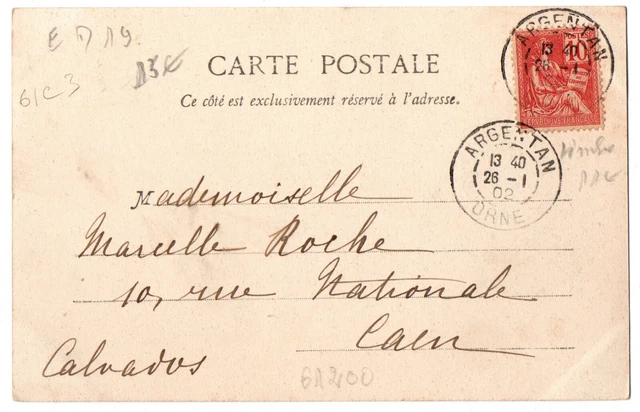 E D 19
61C3
13€
CARTE POSTALE
Ce côté est exclusivement réservé à l'adresse.
POSTES
10
RÉPUBLIQUE FRANÇAISE
ARGENTAN
13 40
26 -1
ARGENTAN
13 40
26 -1
02
ORNE
timbre
11€
Mademoiselle
Marcelle Roche
10, rue Nationale
Caen
Calvados
61200